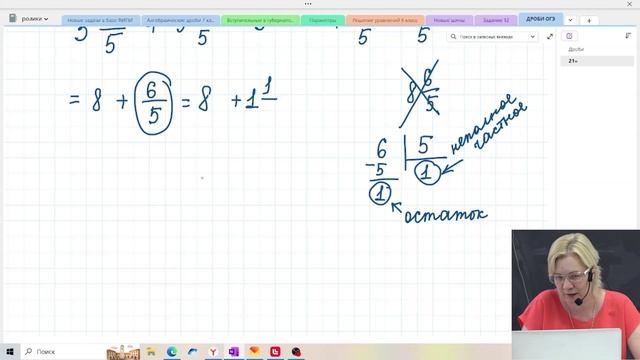 ролики
Новые задачи в базе ФИПИ
Алгебраические дроби 7 кл...
Вступительные в губернато...
Параметры
Решение уравнений 6 класс
Новые шины
Задание 12
ДРОБИ ОГЭ
Поиск в записных книжках
Дроби
21=
5 5 5 5
= 8 + 6/5 = 8 + 1 1/
8 6/5
6 5
-5 1
1
неполное частное
остаток
Поиск